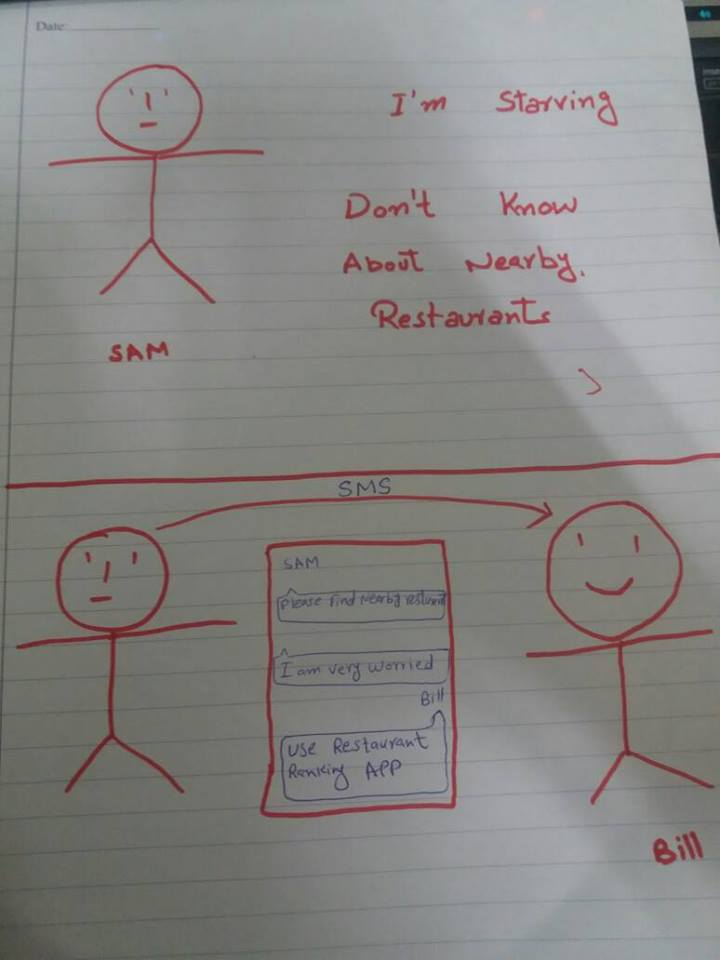 Date:
I'm Starving
Don't Know
About Nearby.
Restaurants
SAM
SMS
SAM
Please Find Nearby
I am very worried
Bill
Use Restaurant
Ranking APP
Bill